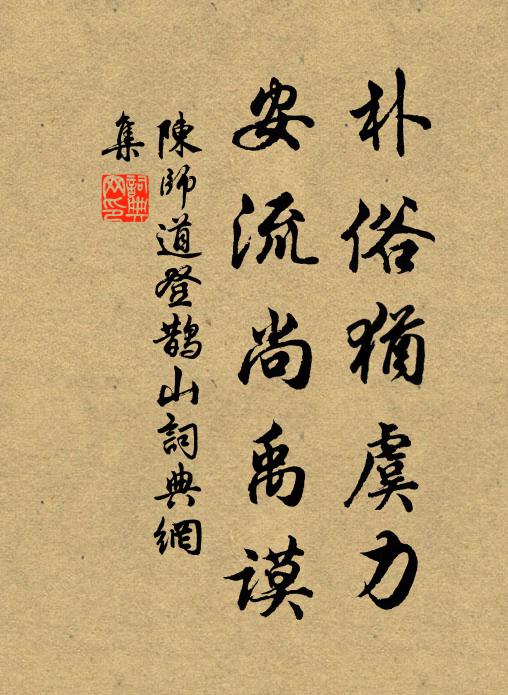 朴俗猶虞力
安流尚禹謨
陳師道登鵲山詞典網
集
詞典
网印